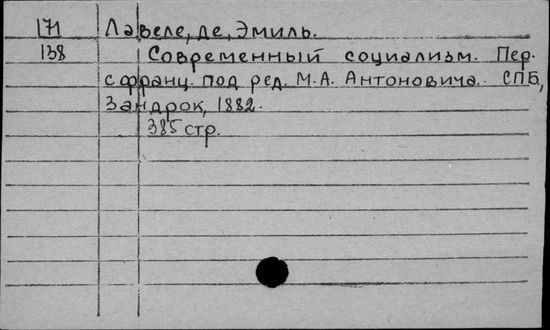 171 Лавеле, де, Эмиль.
138 Современный социализм. Пер.
с франц. под ред. М.А. Антоновича. СПБ,
Зандрок, 1882.
385 стр.